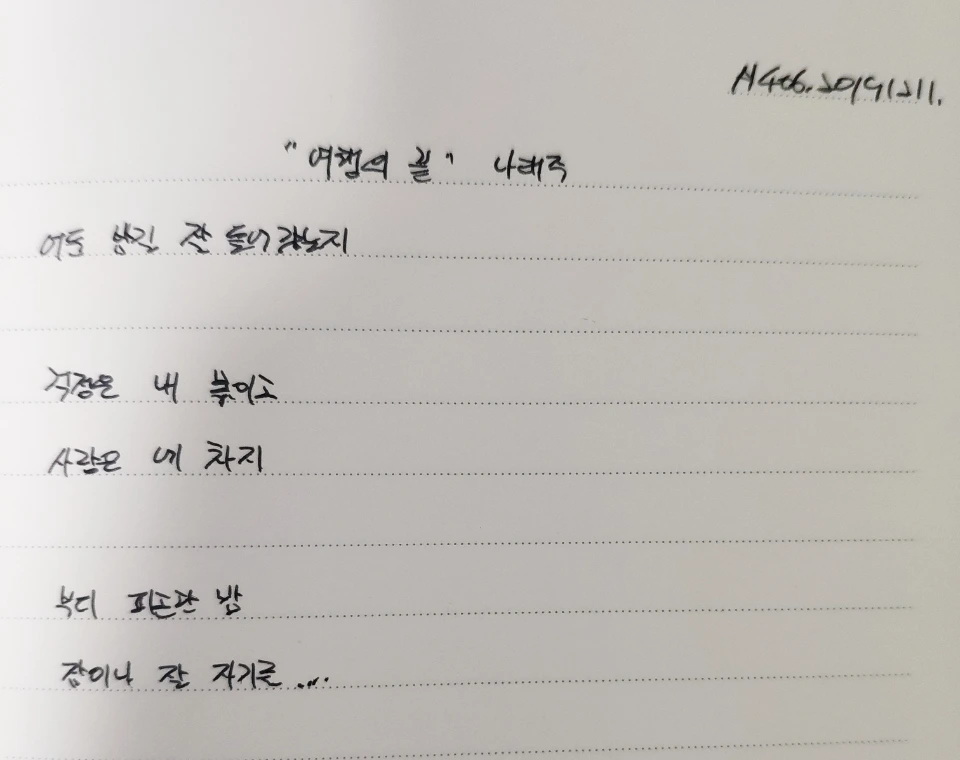 N406.20191211.
"여행의 끝" 나태주
어둔 밤길 잘 들어갔는지
걱정은 내 몫이고
사랑은 네 차지
부디 피곤한 밤
잠이나 잘 자기를....